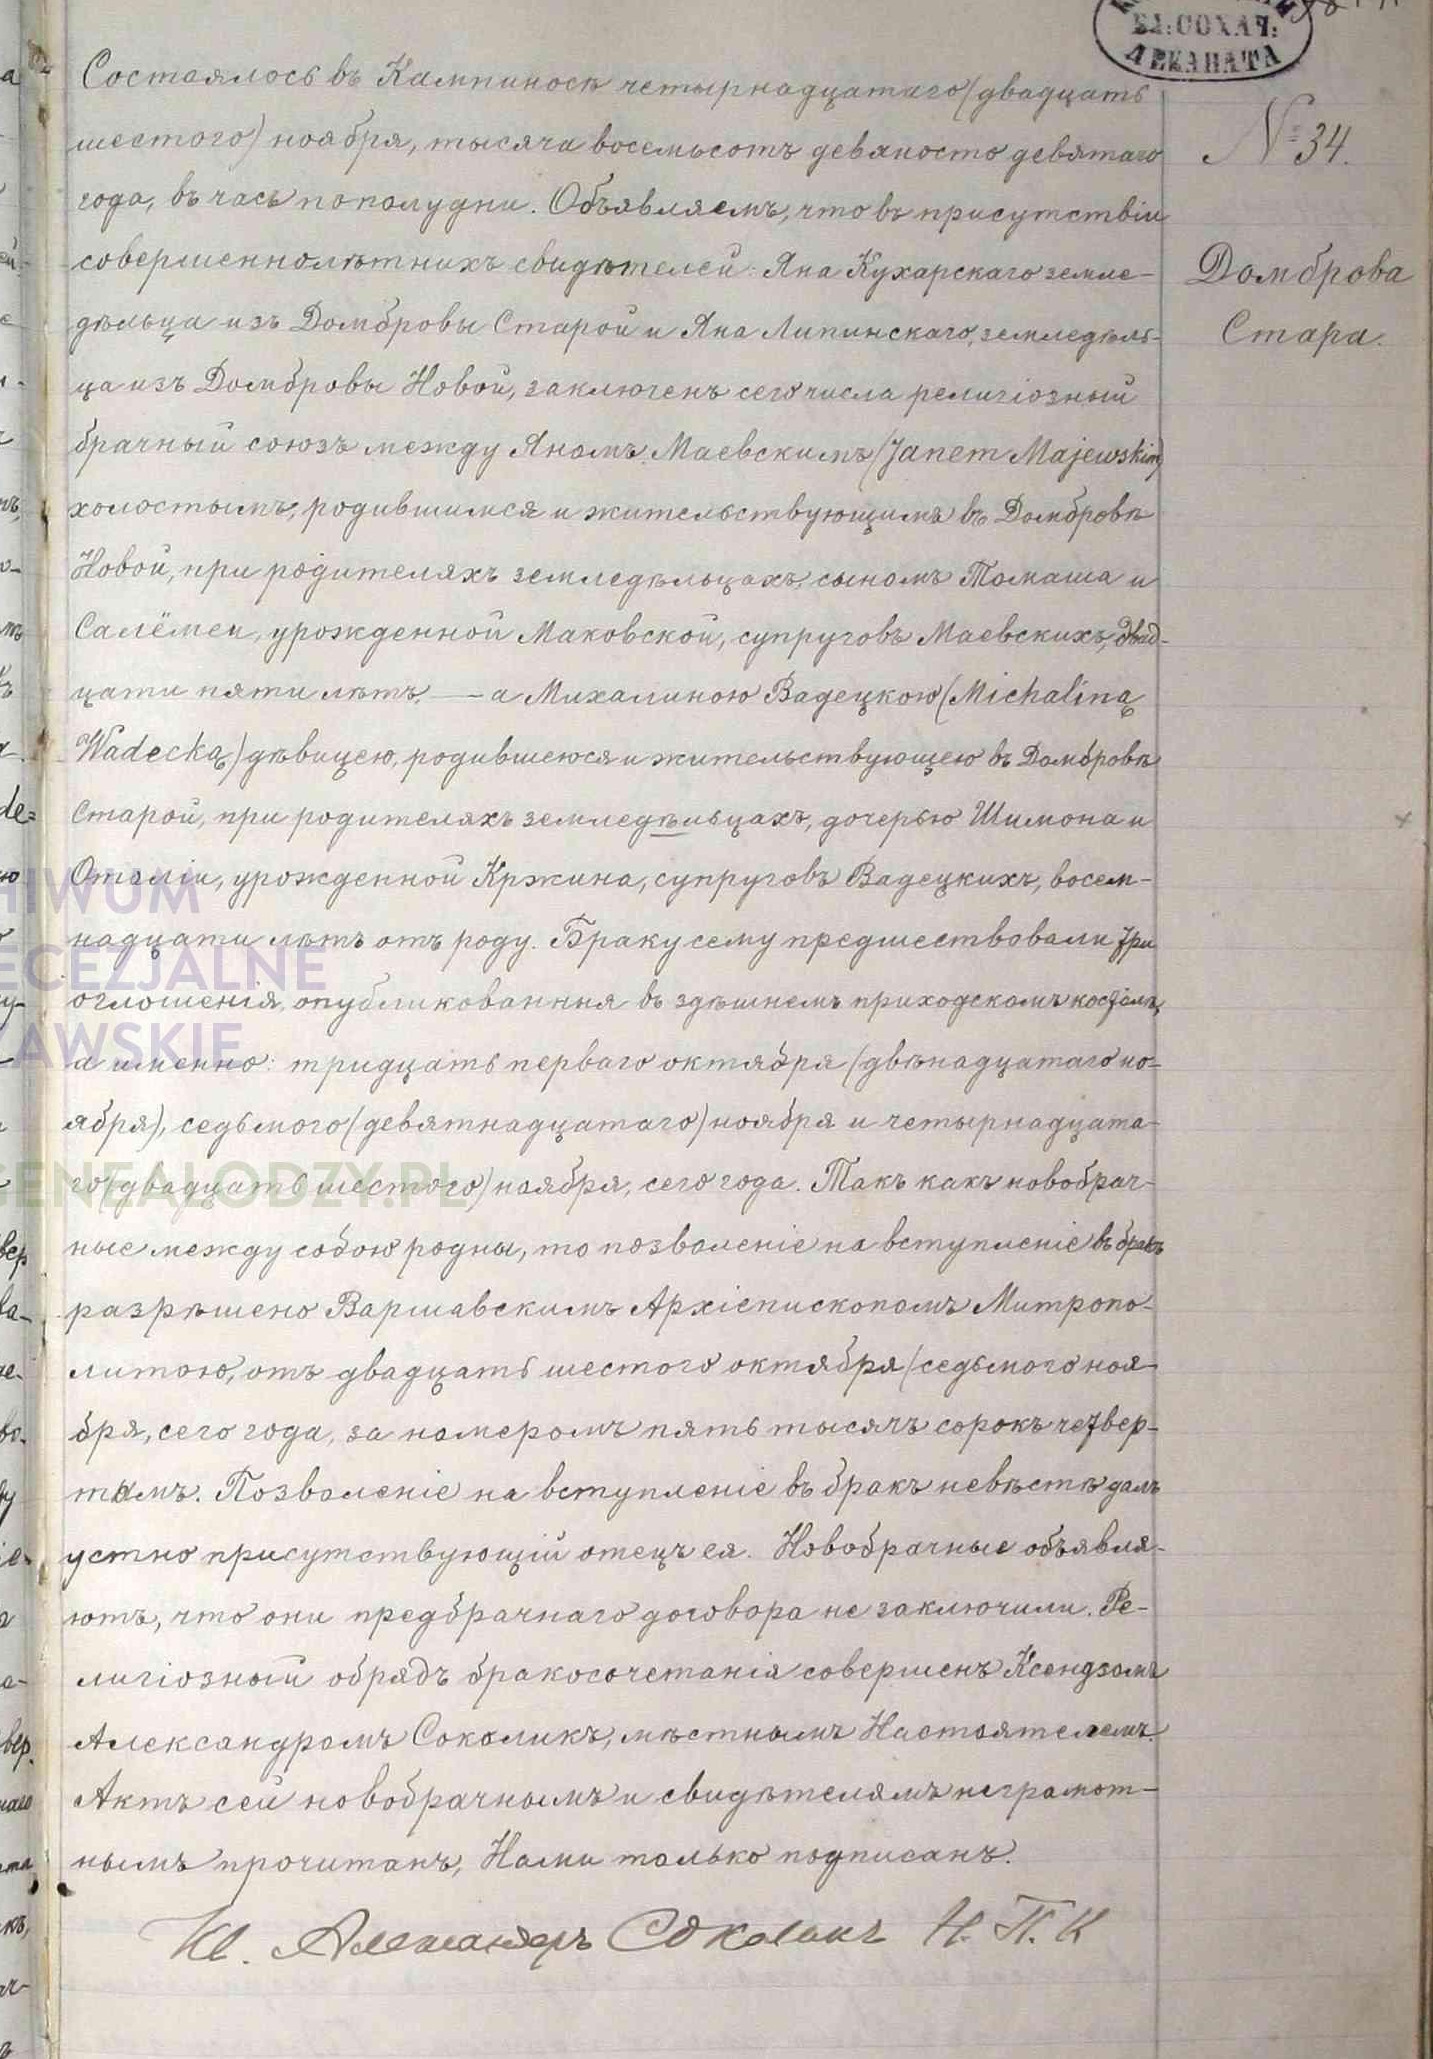 БЛ: СОХАЧ:
ДЕКАНАТА
№ 34.
Домброва
Стара.
Состоялось въ Кампиносѣ четырнадцатаго (двадцать
шестого) ноября, тысяча восемьсотъ девяносто девятаго
года, въ часъ пополудни. Объявляемъ, что въ присутствіи
совершеннолѣтнихъ свидѣтелей: Яна Кухарскаго земле-
дѣльца изъ Домбровы Старой и Яна Липинскаго, земледѣль-
ца изъ Домбровы Новой, заключенъ сего числа религіозный
брачный союзъ между Яномъ Маевскимъ (Janem Majewskim)
холостымъ, родившимся и жительствующимъ въ Домбровѣ
Новой, при родителяхъ земледѣльцахъ, сыномъ Томаша и
Салёмеи, урожденной Маковской, супруговъ Маевскихъ, двад-
цати пяти лѣтъ, — а Михалиною Вадецкою (Michaliną
Wadecką) дѣвицею, родившеюся и жительствующею въ Домбровѣ
Старой, при родителяхъ земледѣльцахъ, дочерью Шимона и
Отоліи, урожденной Кржина, супруговъ Вадецкихъ, восем-
надцати лѣтъ отъ роду. Браку сему предшествовали три
оглошенія, опубликованныя въ здѣшнемъ приходскомъ костёлѣ,
а именно: тридцать перваго октября (двѣнадцатаго но-
ября), седьмого (девятнадцатаго) ноября и четырнадцата-
го (двадцать шестого) ноября, сего года. Такъ какъ новобрач-
ные между собою родны, то позволеніе на вступленіе въ бракъ
разрѣшено Варшавскимъ Архіепископомъ Митропо-
литою, отъ двадцать шестого октября (седьмого ноя-
бря, сего года, за номеромъ пять тысячъ сорокъ четвер-
тымъ. Позволеніе на вступленіе въ бракъ невѣстѣ далъ
устно присутствующій отецъ ея. Новобрачные объявля-
ютъ, что они предбрачнаго договора не заключили. Ре-
лигіозный обрядъ бракосочетанія совершенъ Ксендзомъ
Александромъ Соколикъ, мѣстнымъ Настоятелемъ.
Актъ сей новобрачнымъ и свидѣтелямъ неграмот-
нымъ прочитанъ, Нами только подписанъ.
Кс. Александеръ Соколикъ Н. П. К
HIWUM
ECEZJALNE
AWSKIE
GENEALODZY.PL